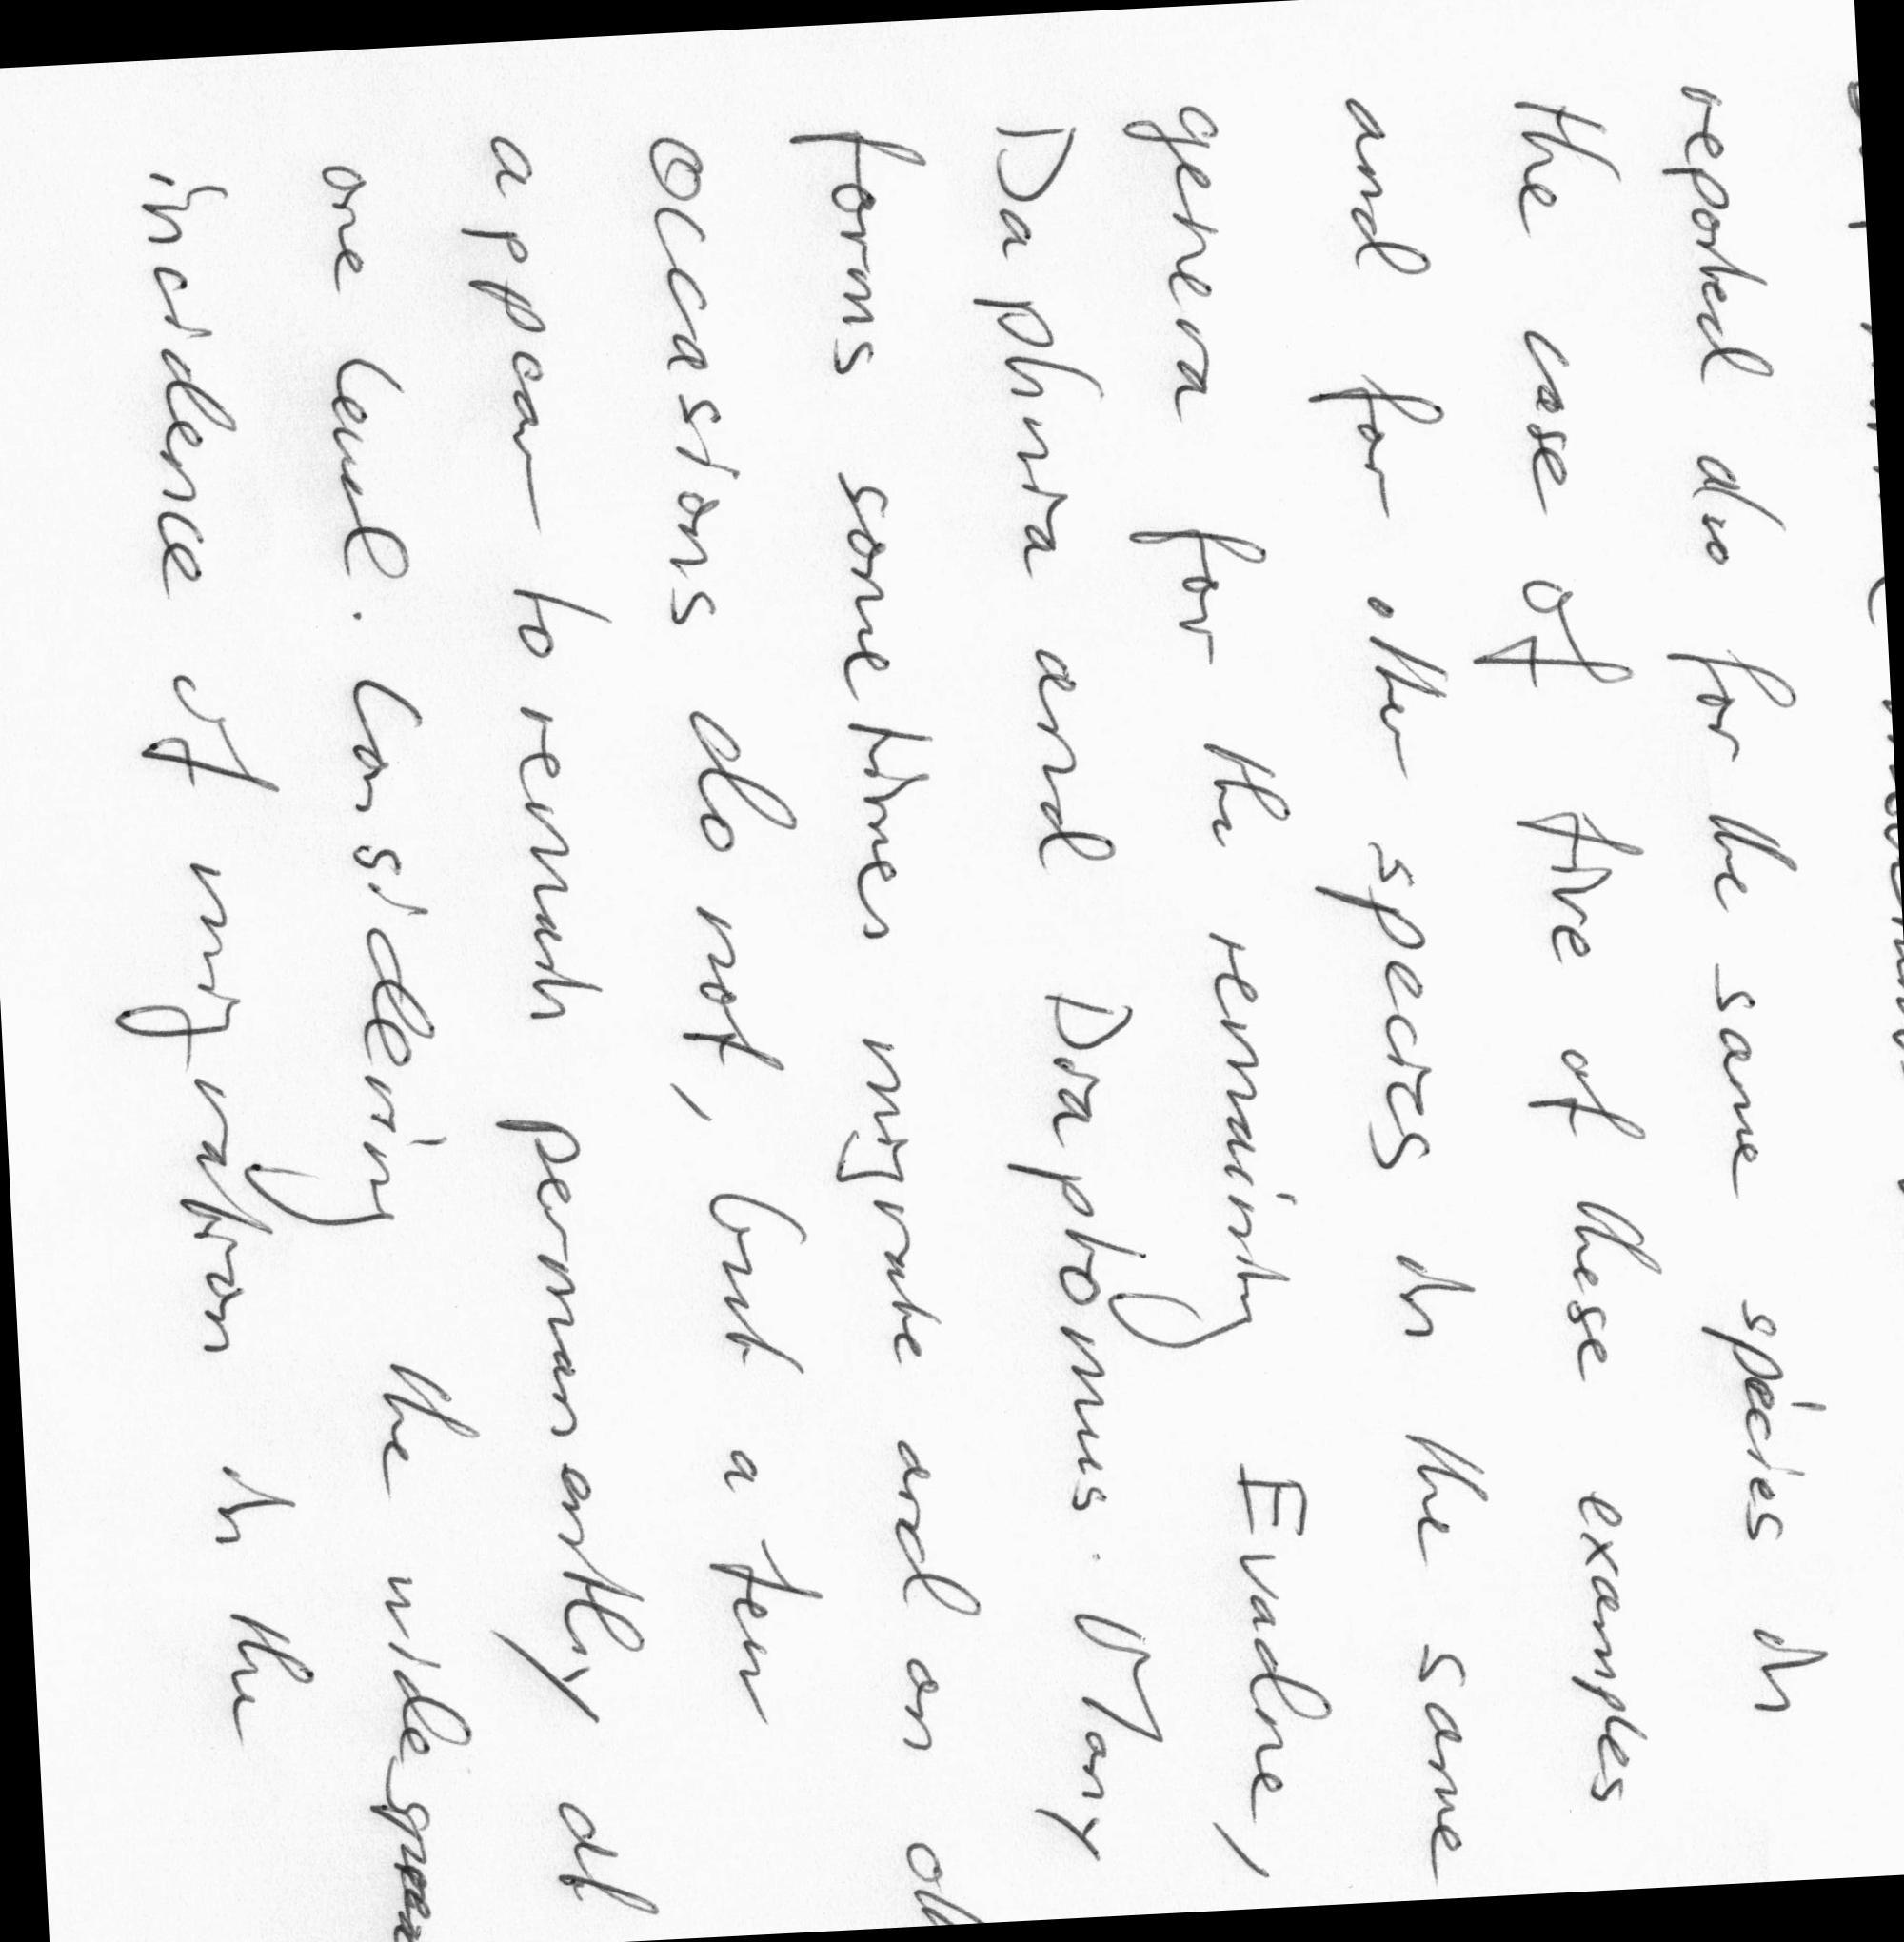 reported also for the same species in
the case of five of these examples
and for other species in the same
genera for the remaining Evadne,
Daphnia and Diaptomus. Many
forms sometimes migrate and on
occasions do not, but a few
appear to remain permanently at
one level. Considering the
incidence of migration in the